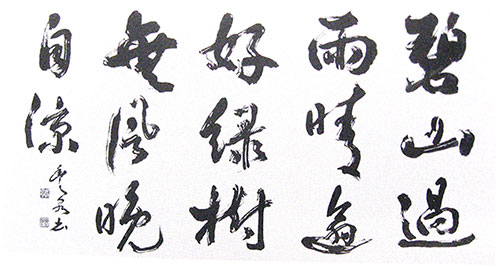 碧山過
雨晴逾
好緑樹
無風晩
自涼